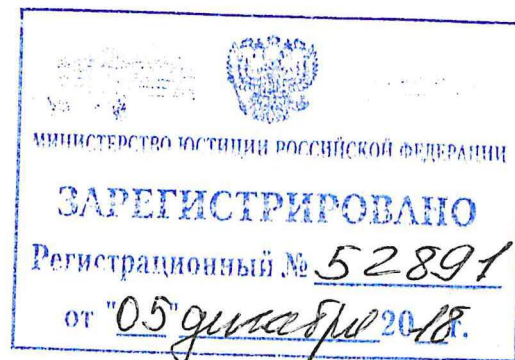 МИНИСТЕРСТВО ЮСТИЦИИ РОССИЙСКОЙ ФЕДЕРАЦИИ
ЗАРЕГИСТРИРОВАНО
Регистрационный № 52891
от "05" декабря 2018г.